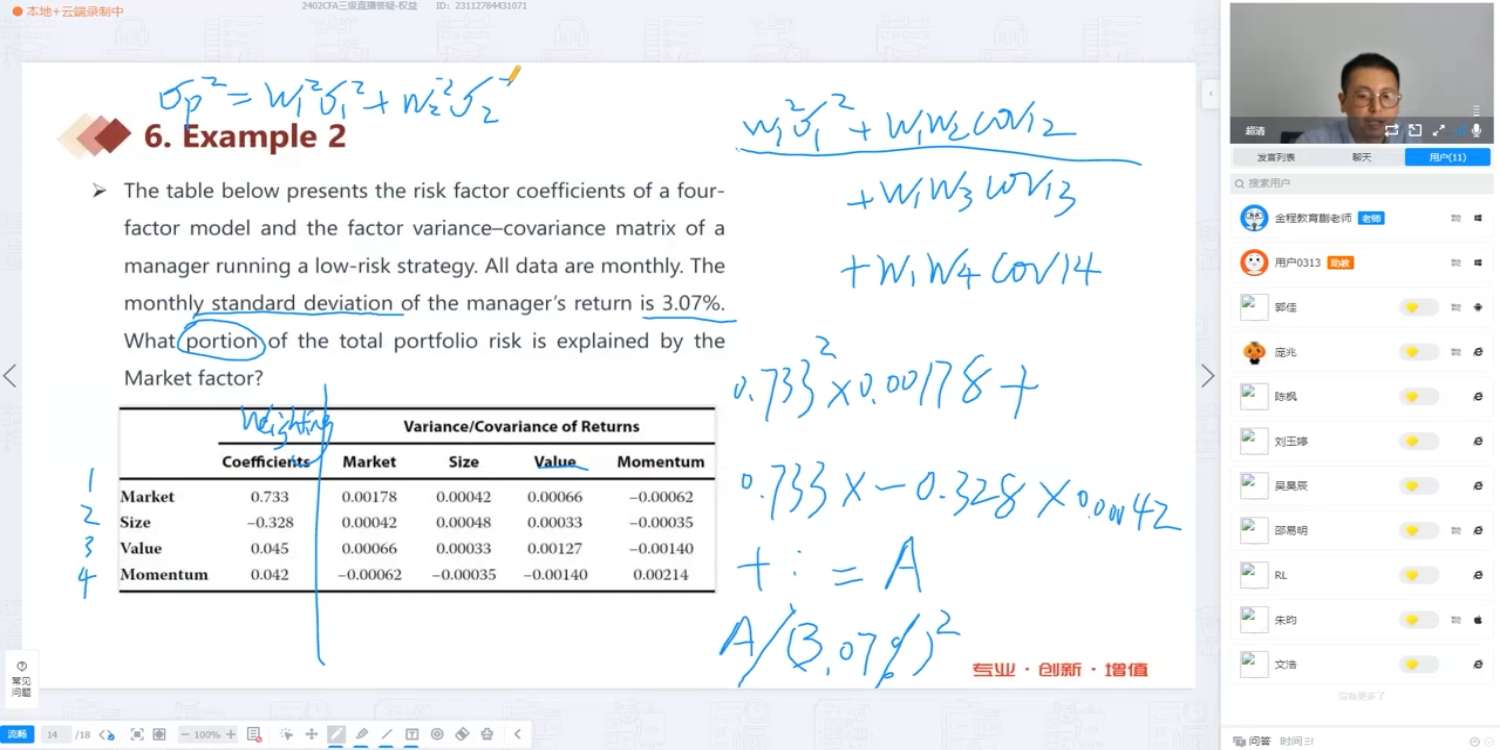 本地+云端录制中
2402CFA三级直播答疑-权益 ID: 23112784431071
σp² = W₁²σ₁² + W₂²σ₂
6. Example 2
➤ The table below presents the risk factor coefficients of a four-
factor model and the factor variance–covariance matrix of a
manager running a low-risk strategy. All data are monthly. The
monthly standard deviation of the manager's return is 3.07%.
What portion of the total portfolio risk is explained by the
Market factor?
Weighting
Variance/Covariance of Returns
Coefficients Market Size Value Momentum
1 Market 0.733 0.00178 0.00042 0.00066 −0.00062
2 Size −0.328 0.00042 0.00048 0.00033 −0.00035
3 Value 0.045 0.00066 0.00033 0.00127 −0.00140
4 Momentum 0.042 −0.00062 −0.00035 −0.00140 0.00214
W₁²σ₁² + W₁W₂COV12
+W₁W₃COV13
+W₁W₄COV14
0.733² × 0.00178 +
0.733 × −0.328 × 0.00042
+ ⋮ = A
A/(3.07%)²
专业 · 创新 · 增值
常见
问题
流畅 14 /18 100%
超清
发言列表 聊天 用户(11)
搜索用户
金程教育蒯老师 老师
用户0313 助教
郭佳
庞兆
陈枫
刘玉婷
吴昊辰
邵易明
RL
朱昀
文浩
没有更多了
问答 时间